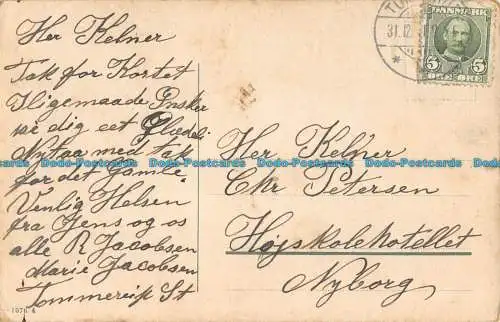 Her Kelner
Tak for Kortet
Iligemaade Ønsker
vi dig eet Glædeli
Nytaa med tak
for det Gamle
Venlig Helsen
fra Jens og os
alle R Jacobsen
Marie Jacobsen
Tommerup St
1076 4
TO
31.12
DANMARK
5 5
ØRE ØRE
Her Kelner
Chr Petersen
Højskolehotellet
Nyborg
Dodo-Postcards Dodo-Postcards Dodo-Postcards Dodo-Postcards Dodo-Postcards